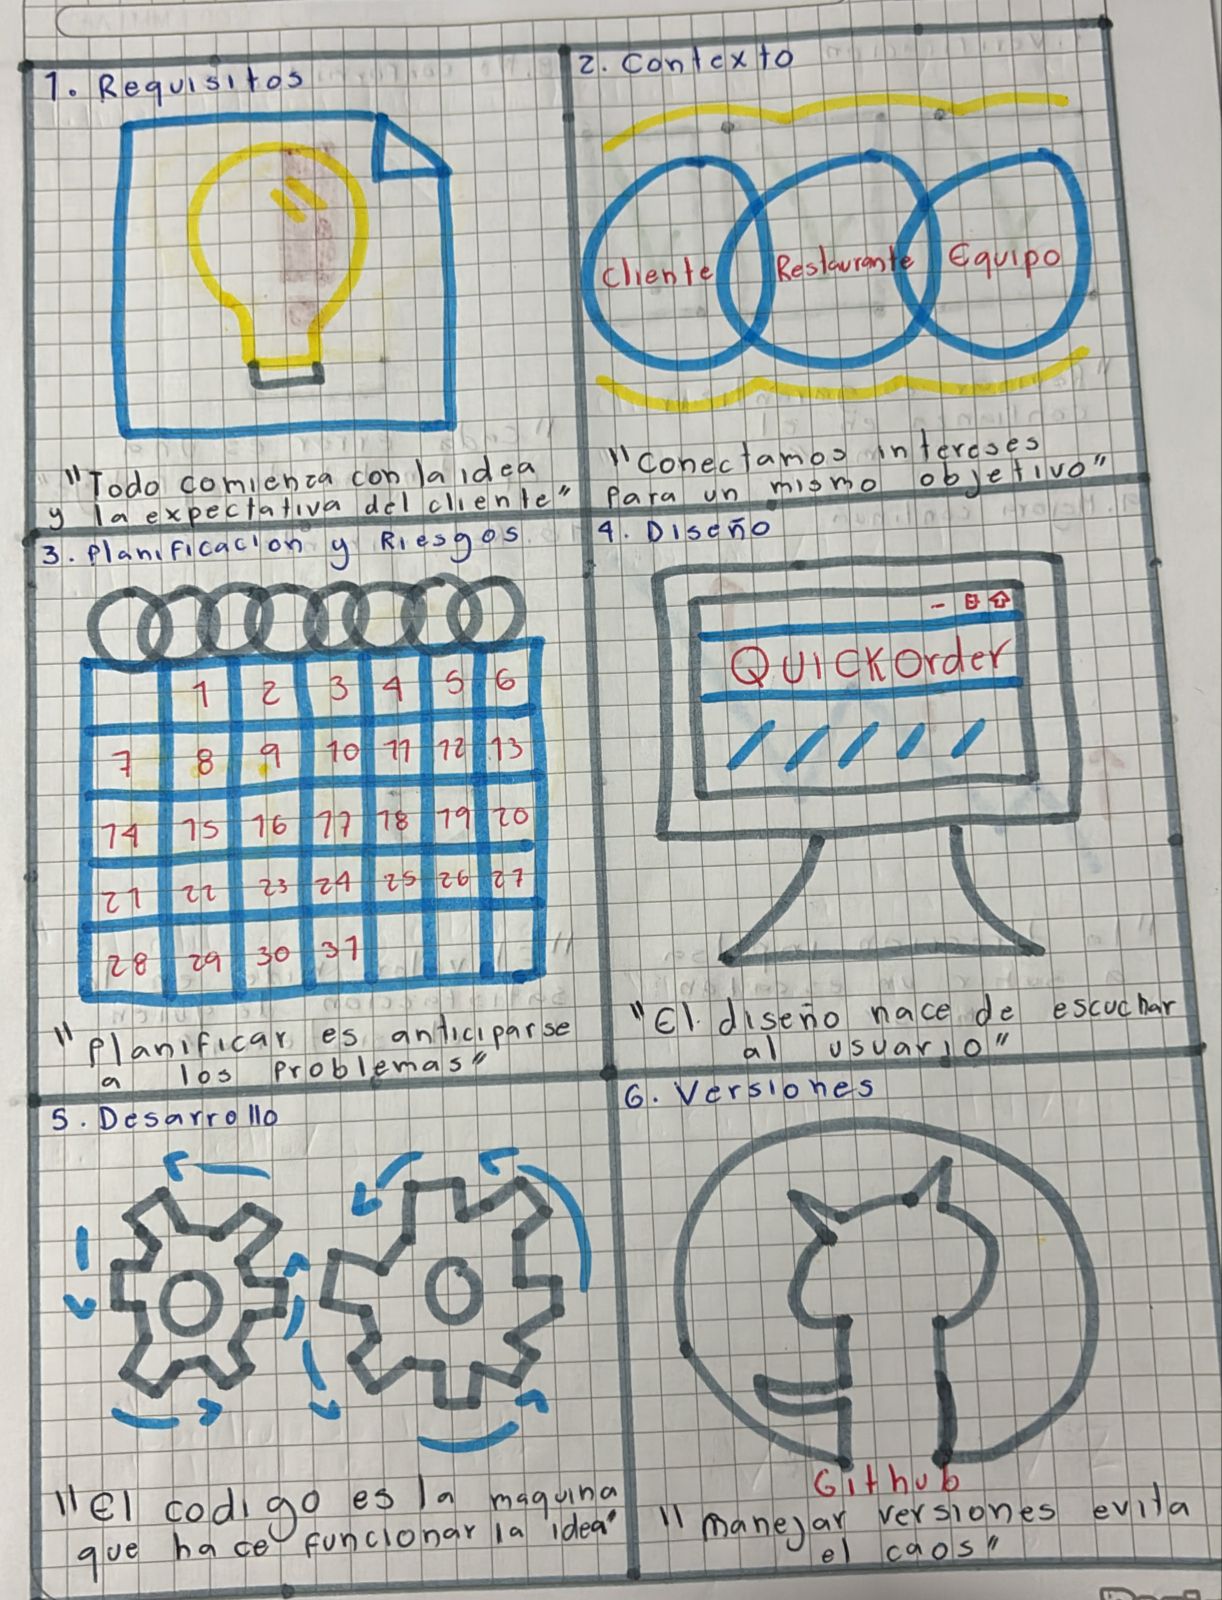 1. Requisitos
"Todo comienza con la idea
y la expectativa del cliente"
2. Contexto
Cliente Restaurante Equipo
"Conectamos intereses
Para un mismo objetivo"
3. Planificacion y Riesgos
1 2 3 4 5 6
7 8 9 10 11 12 13
14 15 16 17 18 19 20
21 22 23 24 25 26 27
28 29 30 31
"Planificar es anticiparse
a los problemas"
4. Diseño
QUICKOrder
"El diseño nace de escuchar
al usuario"
5. Desarrollo
"El codigo es la maquina
que hace funcionar la idea"
6. Versiones
Github
"manejar versiones evita
el caos"